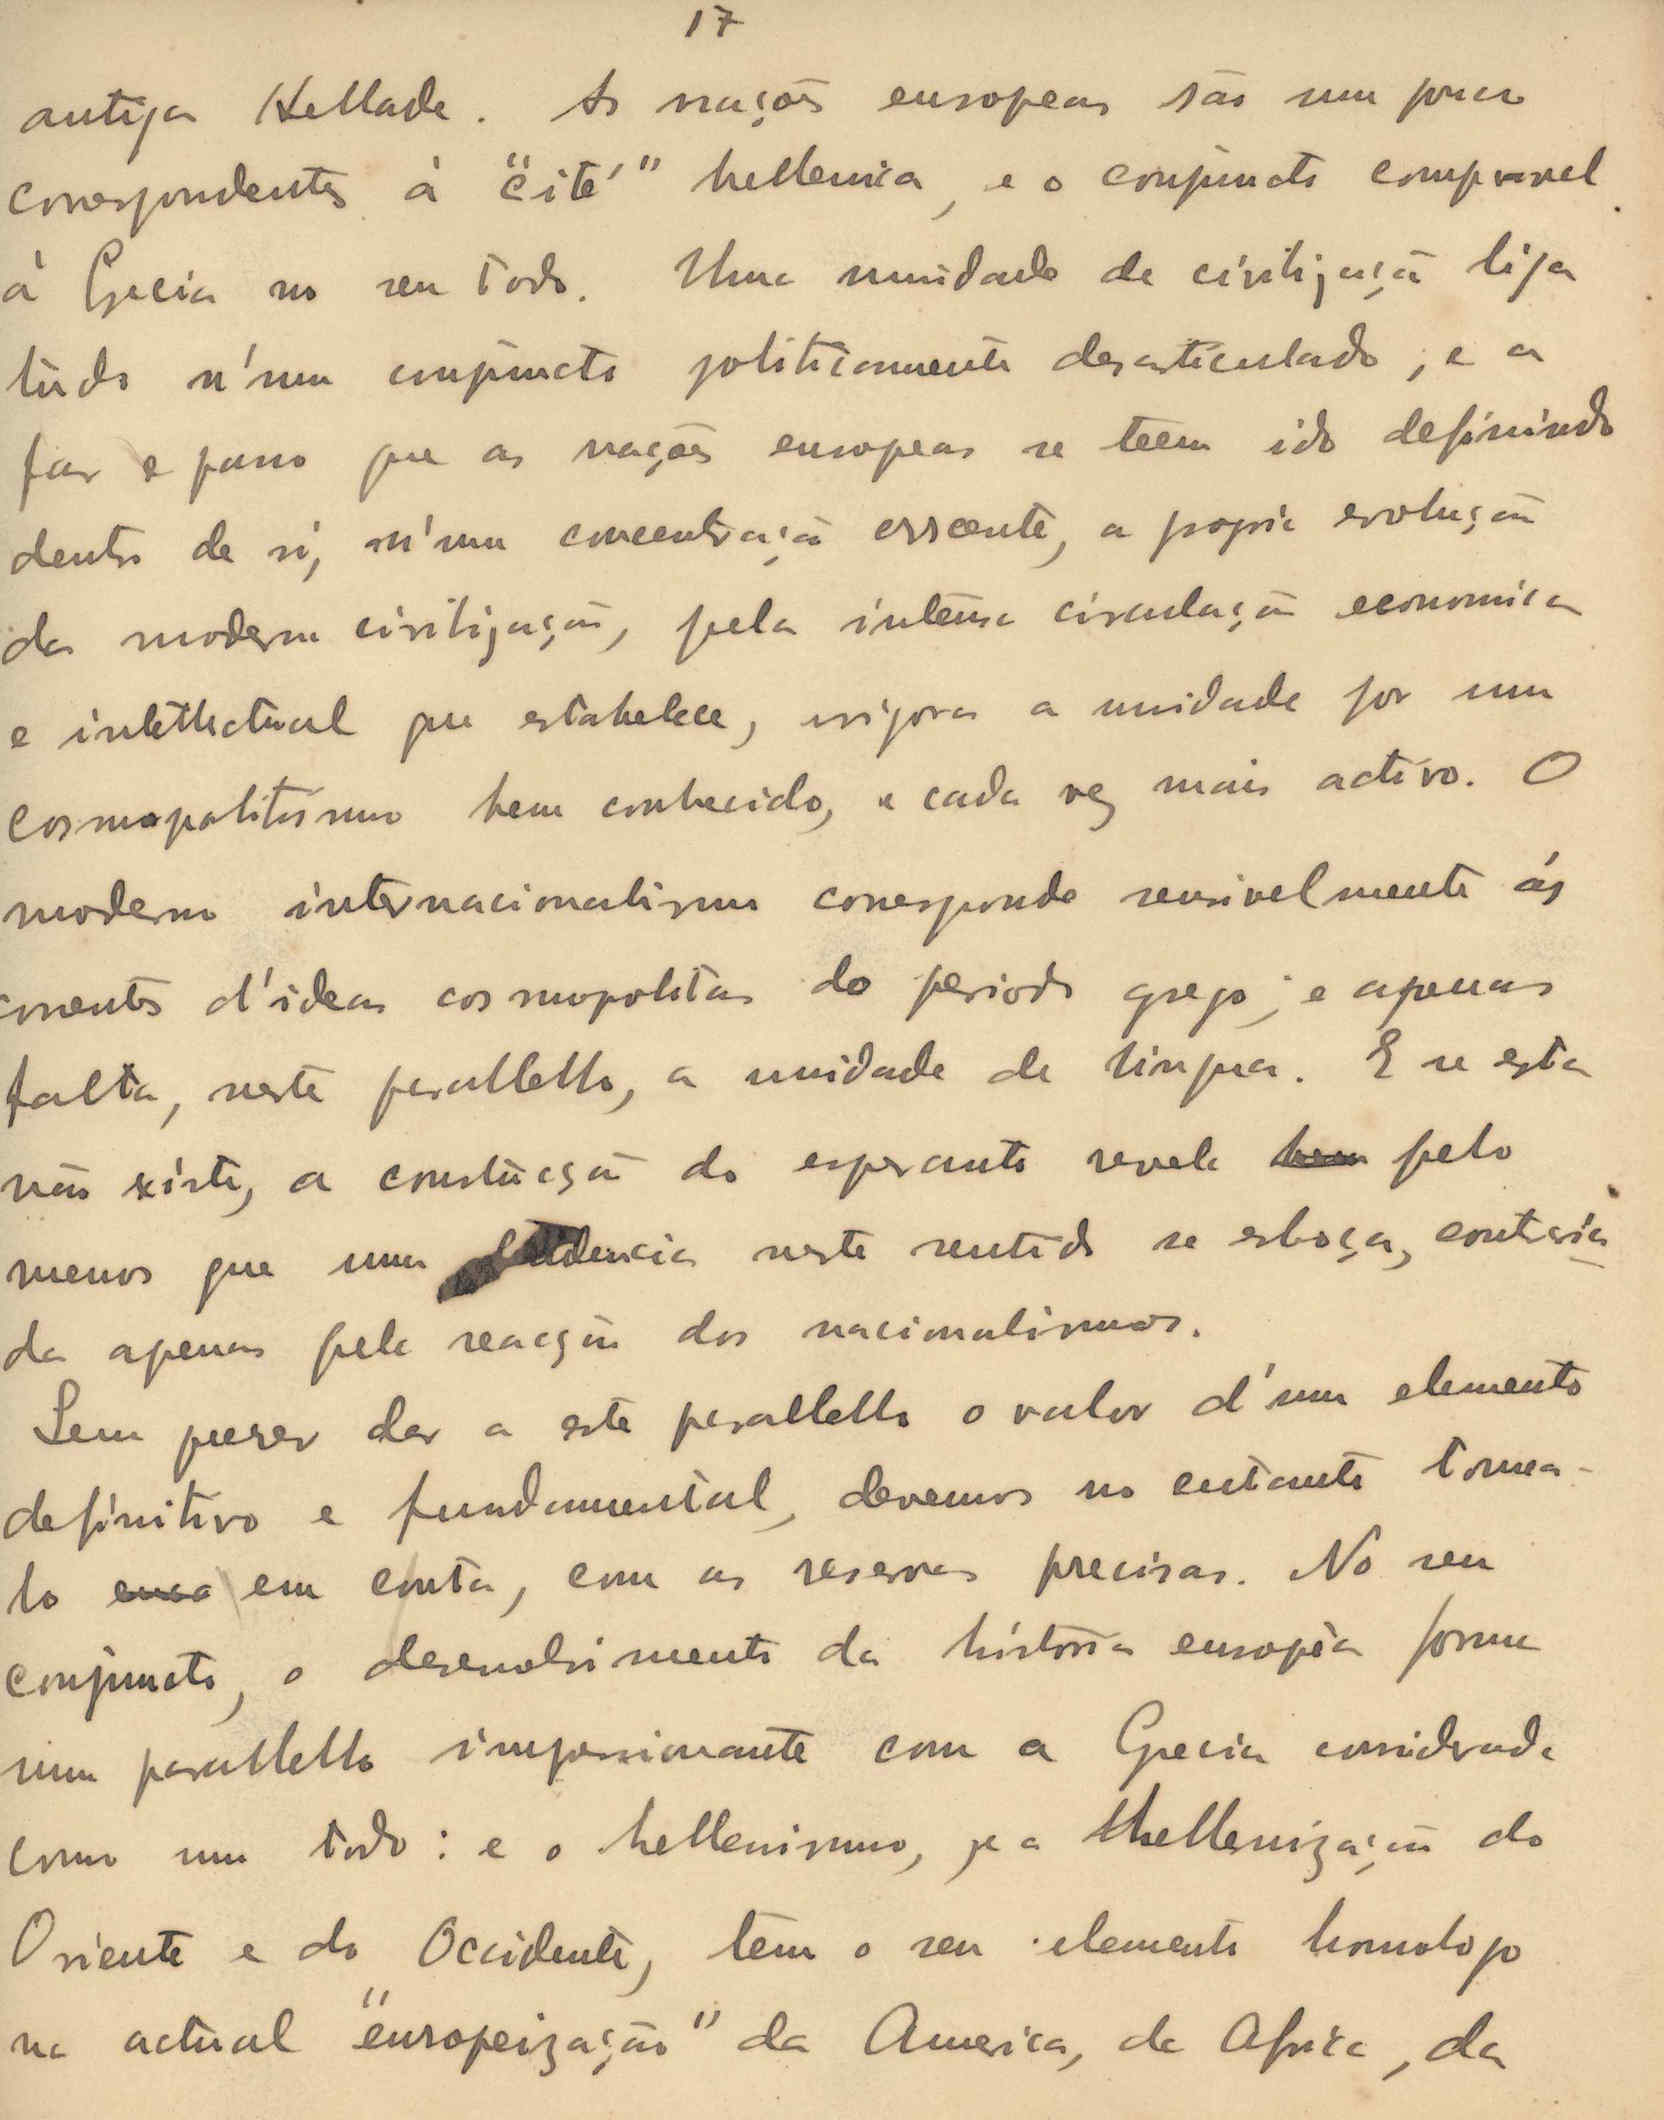 17
antiga Hellade. As nações europeas são um pouco
correspondentes á "cité" hellenica, e o conjuncto comparavel
á Grecia no seu todo. Uma unidade de civilização liga
tudo n'um conjuncto politicamente desarticulado, e a
par e passo que as nações europeas se teem ido definindo
dentro de si, n'uma concentração crescente, a propria evolução
da moderna civilização, pela intensa circulação economica
e intellectual que estabelece, vigora a unidade por um
cosmopolitismo bem conhecido, e cada vez mais activo. O
moderno internacionalismo corresponde sensivelmente ás
correntes d'ideas cosmopolitas do periodo grego; e apenas
falta, neste parallello, a unidade de lingua. E se esta
não existe, a construcção do esperanto revela pelo
menos que uma tendencia neste sentido se esboça, contraria-
da apenas pela reacção dos nacionalismos.
Sem querer dar a este parallello o valor d'um elemento
definitivo e fundamental, devemos no entanto toma-
lo em conta, com as reservas precisas. No seu
conjuncto, o desenvolvimento da historia europêa forma
um parallello impressionante com a Grecia considerada
como um todo: e o hellenismo, que a hellenização do
Oriente e do Occidente, tem o seu elemento homologo
na actual "europeização" da America, da Africa, da